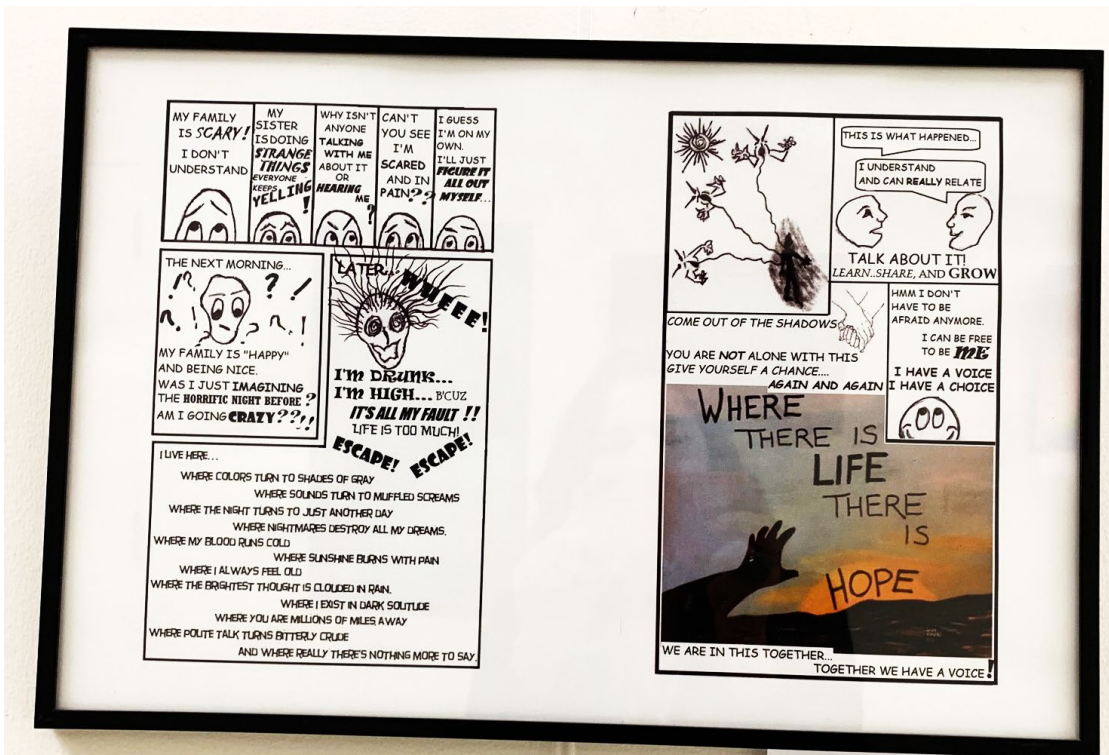 MY FAMILY
IS SCARY!
I DON'T
UNDERSTAND
MY
SISTER
IS DOING
STRANGE
THINGS
EVERYONE
KEEPS
YELLING!
WHY ISN'T
ANYONE
TALKING
WITH ME
ABOUT IT
OR
HEARING
ME?
CAN'T
YOU SEE
I'M
SCARED
AND IN
PAIN??
I GUESS
I'M ON MY
OWN.
I'LL JUST
FIGURE IT
ALL OUT
MYSELF...
THE NEXT MORNING...
!?, ? !
?. ! ?. . !
MY FAMILY IS "HAPPY"
AND BEING NICE.
WAS I JUST IMAGINING
THE HORRIFIC NIGHT BEFORE?
AM I GOING CRAZY??!!
LATER...
WHEEE!
I'M DRUNK...
I'M HIGH... B'CUZ
IT'S ALL MY FAULT !!
LIFE IS TOO MUCH!
ESCAPE! ESCAPE!
I LIVE HERE...
WHERE COLORS TURN TO SHADES OF GRAY
WHERE SOUNDS TURN TO MUFFLED SCREAMS
WHERE THE NIGHT TURNS TO JUST ANOTHER DAY
WHERE NIGHTMARES DESTROY ALL MY DREAMS.
WHERE MY BLOOD RUNS COLD
WHERE SUNSHINE BURNS WITH PAIN
WHERE I ALWAYS FEEL OLD
WHERE THE BRIGHTEST THOUGHT IS CLOUDED IN RAIN.
WHERE I EXIST IN DARK SOLITUDE
WHERE YOU ARE MILLIONS OF MILES AWAY
WHERE POLITE TALK TURNS BITTERLY CRUDE
AND WHERE REALLY THERE'S NOTHING MORE TO SAY.
THIS IS WHAT HAPPENED...
I UNDERSTAND
AND CAN REALLY RELATE
TALK ABOUT IT!
LEARN..SHARE, AND GROW
COME OUT OF THE SHADOWS
YOU ARE NOT ALONE WITH THIS
GIVE YOURSELF A CHANCE....
AGAIN AND AGAIN
HMM I DON'T
HAVE TO BE
AFRAID ANYMORE.
I CAN BE FREE
TO BE ME
I HAVE A VOICE
I HAVE A CHOICE
WHERE
THERE IS
LIFE
THERE
IS
HOPE
WE ARE IN THIS TOGETHER...
TOGETHER WE HAVE A VOICE!